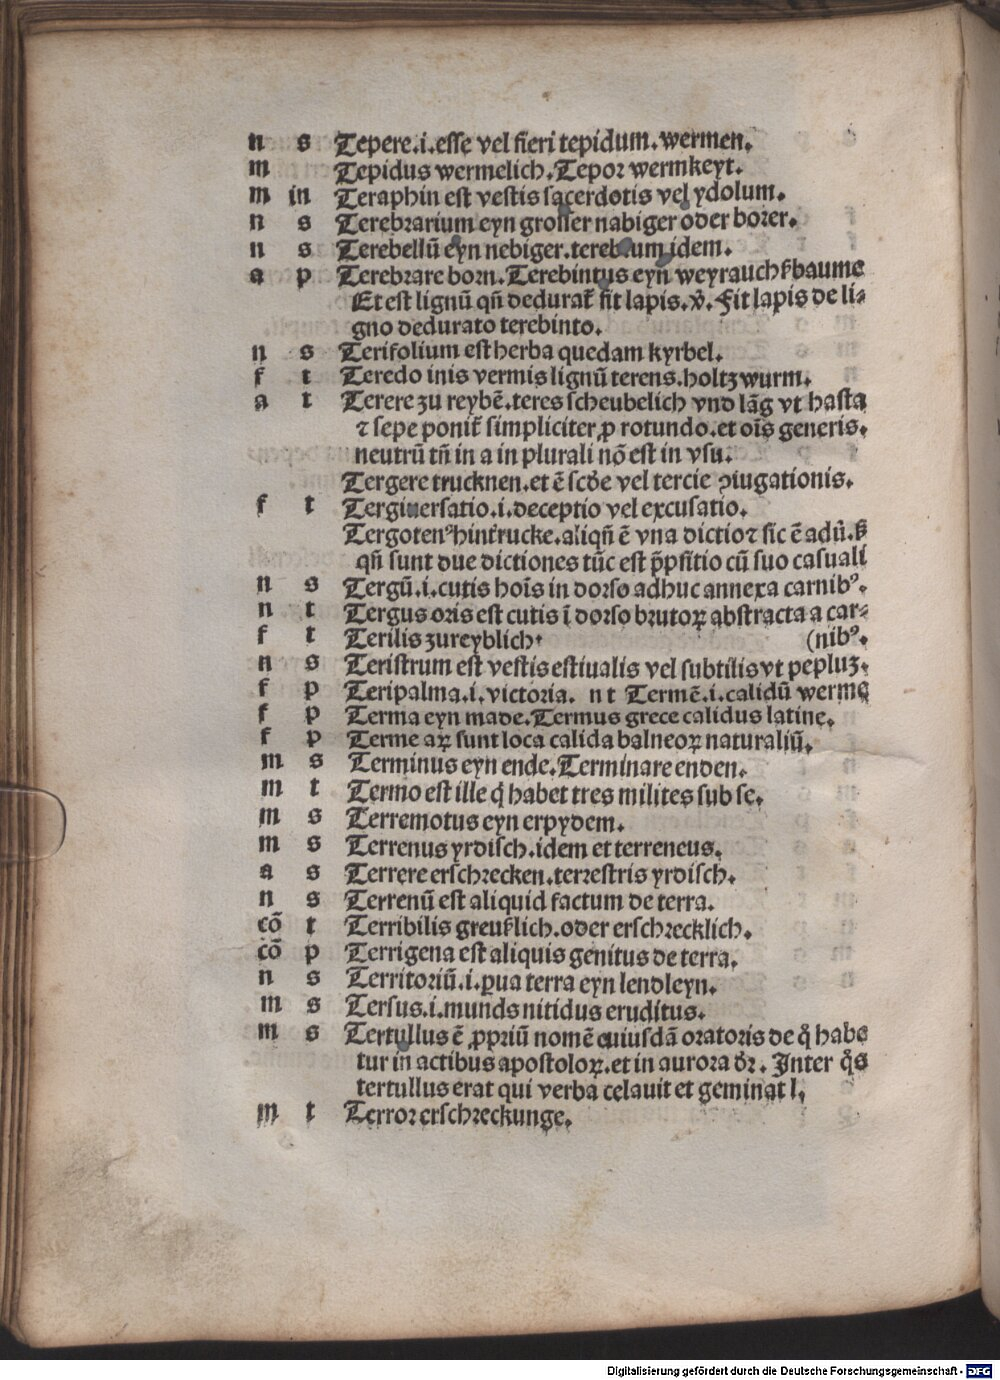 n s Tepere.i.esse vel fieri tepidum.wermen.
m Tepidus wermelich.Tepor wermkeyt.
m in Teraphin est vestis sacerdotis vel ydolum.
n s Terebrarium eyn grosser nabiger oder borer.
n s Terebellū eyn nebiger.terebrum idem.
a p Terebrare born.Terebintus eyn weyrauchbaume
Et est lignū qn̄ dedurat̄ fit lapis.v̄.Fit lapis de li⸗
gno dedurato terebinto.
n s Terifolium est herba quedam kyrbel.
f t Teredo inis vermis lignū terens.holtzwurm.
a t Terere zu reybē.teres scheubelich vnd lāg vt hasta
⁊ sepe ponit̄ simpliciter ꝓ rotundo.et oīs generis.
neutrū tn̄ in a in plurali nō est in vsu.
Tergere trucknen.et ē scd̄e vel tercie ꝯiugationis.
f t Tergiuersatio.i.deceptio vel excusatio.
Tergotenꝰ hinꝛrucke.aliqn̄ ē vna dictio ⁊ sic ē adū.
qn̄ sunt due dictiones tūc est p̄positio cū suo casuali
n s Tergū.i.cutis hoīs in dorso adhuc annexa carnibꝰ.
n t Tergus oris est cutis ī dorso brutoꝝ abstracta a car⸗
f t Terilis zureyblich. (nibꝰ.
n s Teristrum est vestis estiualis vel subtilis vt pepluꝫ.
f p Teripalma.i.victoria. n t Termē.i.calidū werme
f p Terma eyn made.Termus grece calidus latine.
f p Terme aꝝ sunt loca calida balneoꝝ naturaliū.
m s Terminus eyn ende.Terminare enden.
m t Termo est ille q̄ habet tres milites sub se.
m s Terremotus eyn erpydem.
m s Terrenus yrdisch.idem et terreneus.
a s Terrere erschrecken.terrestris yrdisch.
n s Terrenū est aliquid factum de terra.
cō t Terribilis greuslich.oder erschrecklich.
cō p Terrigena est aliquis genitus de terra.
n s Territoriū.i.ꝑua terra eyn lendleyn.
m s Tersus.i.mundꝰ nitidus eruditus.
m s Tertullus ē ꝓpriū nomē cuiusdā oratoris de q̊ habe
tur in actibus apostoloꝝ.et in aurora dr̄. Inter q̊s
tertullus erat qui verba celauit et geminat l.
m t Terror erschreckunge.
Digitalisierung gefördert durch die Deutsche Forschungsgemeinschaft - DFG